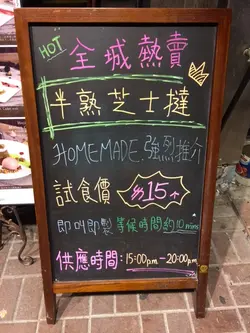 HOT 全城熱賣
半熟芝士撻
HOMEMADE.強烈推介
試食價 $15个
即叫即製 等候時間約10mins
供應時間:15:00pm-20:00pm